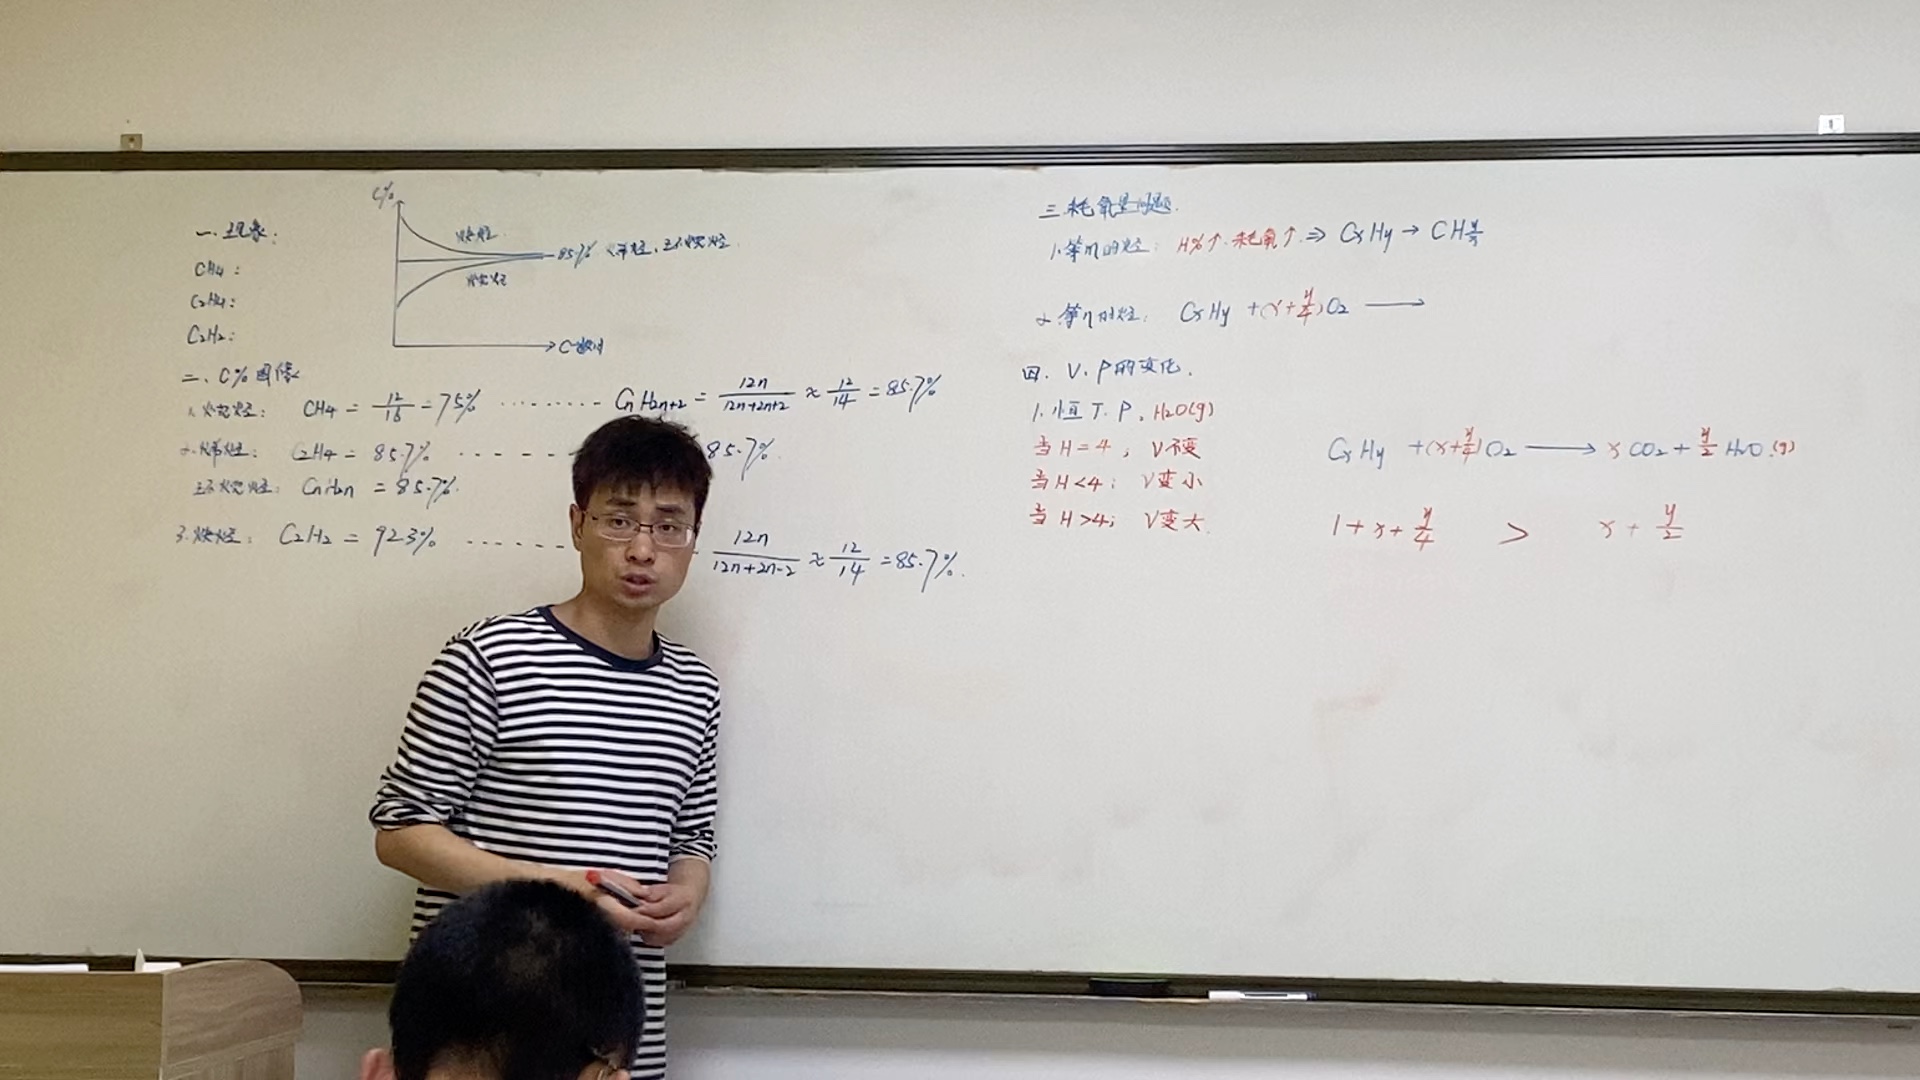 一.现象:
CH4:
C2H4:
C2H2:
C%
炔烃
85.7% 烯烃、环烷烃
烷烃
C个数
二、C%图像
1.烷烃: CH4 = 12/16 = 75% ········ CnH2n+2 = 12n/12n+2n+2 ≈ 12/14 = 85.7%
2.烯烃: C2H4 = 85.7% - - - - - 85.7%
环烷烃: CnH2n = 85.7%.
3.炔烃: C2H2 = 92.3% ······ 12n/12n+2n-2 ≈ 12/14 = 85.7%.
三.耗氧量问题.
1.等m的烃: H%↑.耗氧↑ ⇒ CxHy → CHy/x
2.等n的烃: CxHy +(x+y/4)O2 →
四. V.P的变化.
1.恒T.P, H2O(g)
当H=4, V不变
当H<4; V变小
当H>4; V变大.
CxHy +(x+y/4)O2 → xCO2 + y/2 H2O(g)
1+x+y/4 > x+y/2